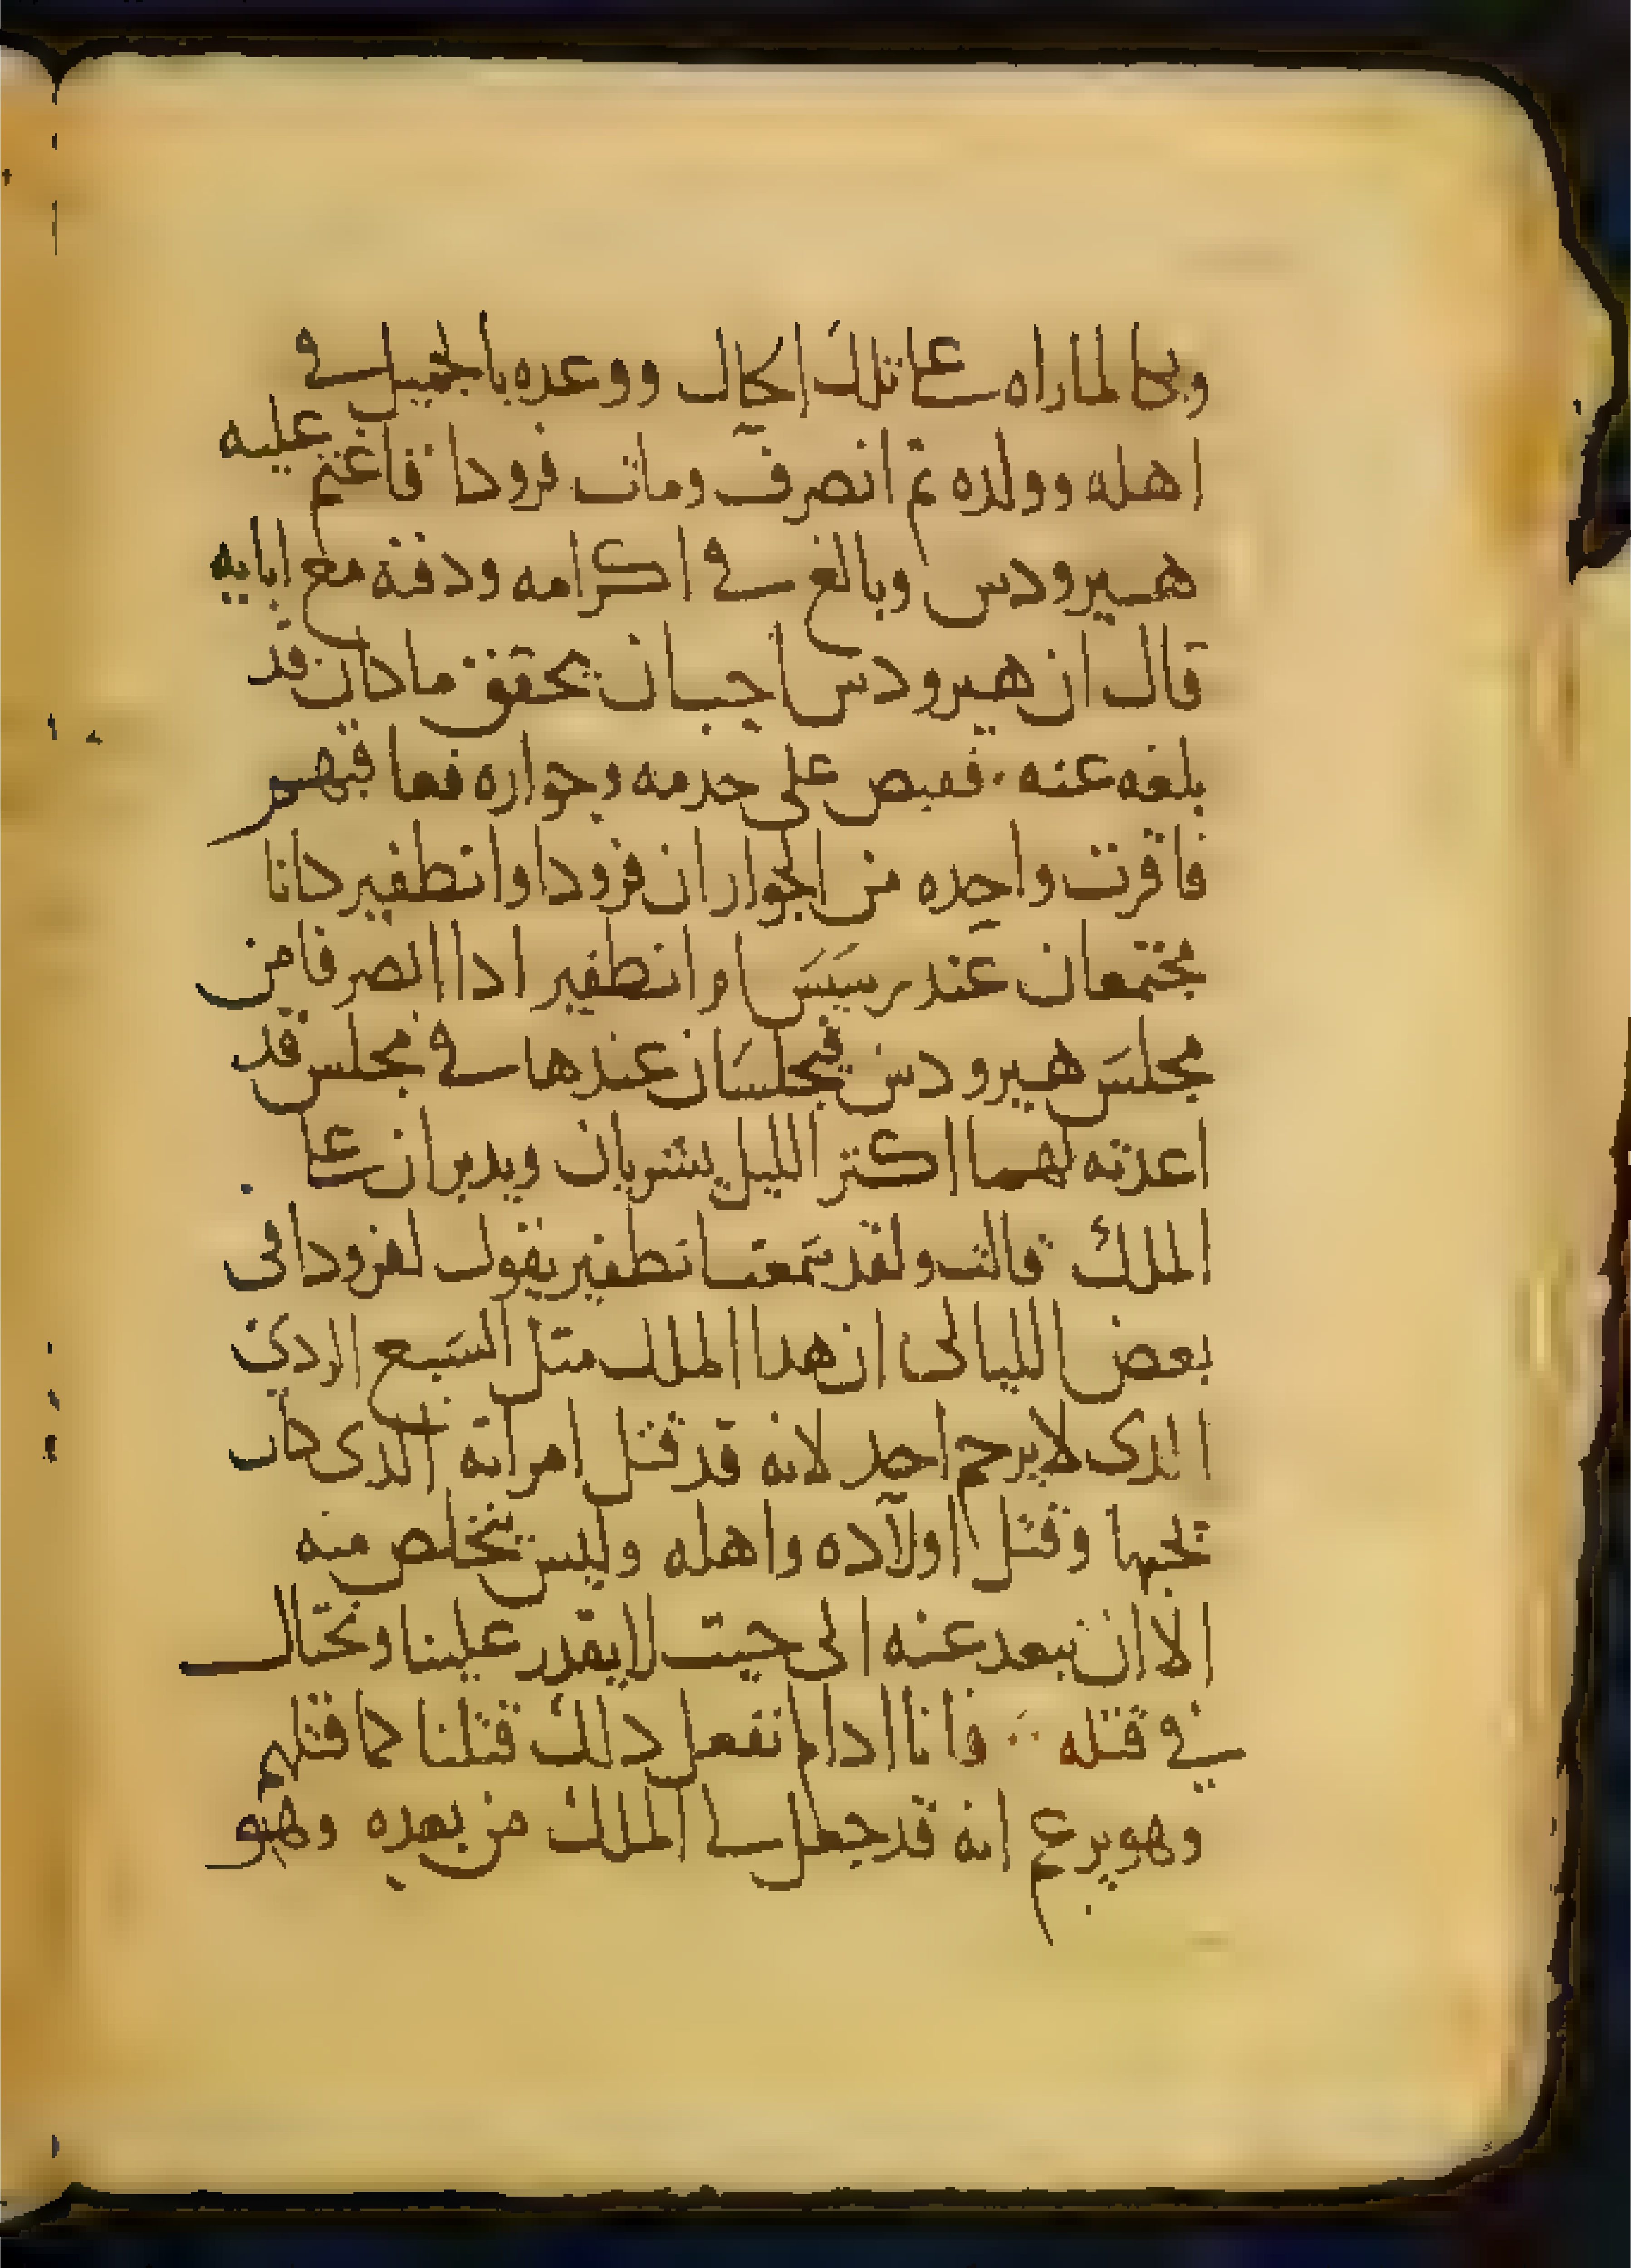 وبكا لما راه على تلك الحال ووعده بالجميل في
اهله وولده تم انصرف ومات فرودا فاغتم عليه
هيرودس وبالغ في اكرامه ودفنه مع ابايه
قال ان هيرودس احب ان يحقق ما كان قد
بلغه عنه فقبص على خدمه وجواره فعاقبهم
فاقرت واحده من الجوار ان فرودا وانطفير كانا
مجتمعان عند رسيسا وانطفير ادا انصرفا من
مجلس هيرودس فيجلسان عندها في مجلس قد
اعدته لهما اكتر الليل يشربان ويدبران على
الملك قالت ولقد سمعت انطفير يقول لفرودا في
بعض الليالى ان هدا الملك متل السبع الردى
الدى لا يرحم احد لانه قد قتل امراته الدى كان
يحبها وقتل اولاده واهله وليس يتخلص منه
الا ان نبعد عنه الى حيت لا يقدر علينا ونحتال
في قتله فانا ادا لم نفعل دلك قتلنا كما قتلهم
وهو يزعم انه قد جعل لي الملك من بعده وهو